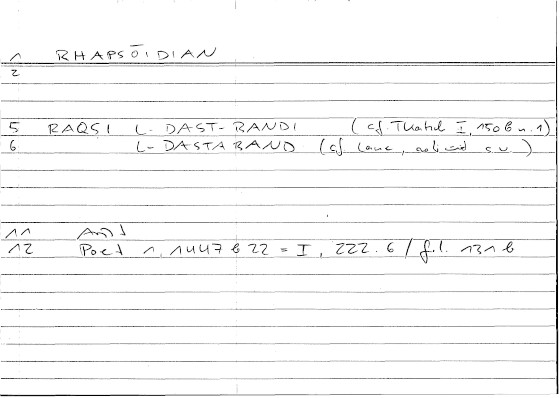 1 RHAPSŌIDIAN
2
5 RAQSI L-DAST-BANDI (cf. Tkatsch I, 150 b n. 1)
6 L-DASTABAND (cf Lane, s.v.)
11 Arist
12 Poet 1, 1447 b 22 = I, 222.6 / fol. 131 b